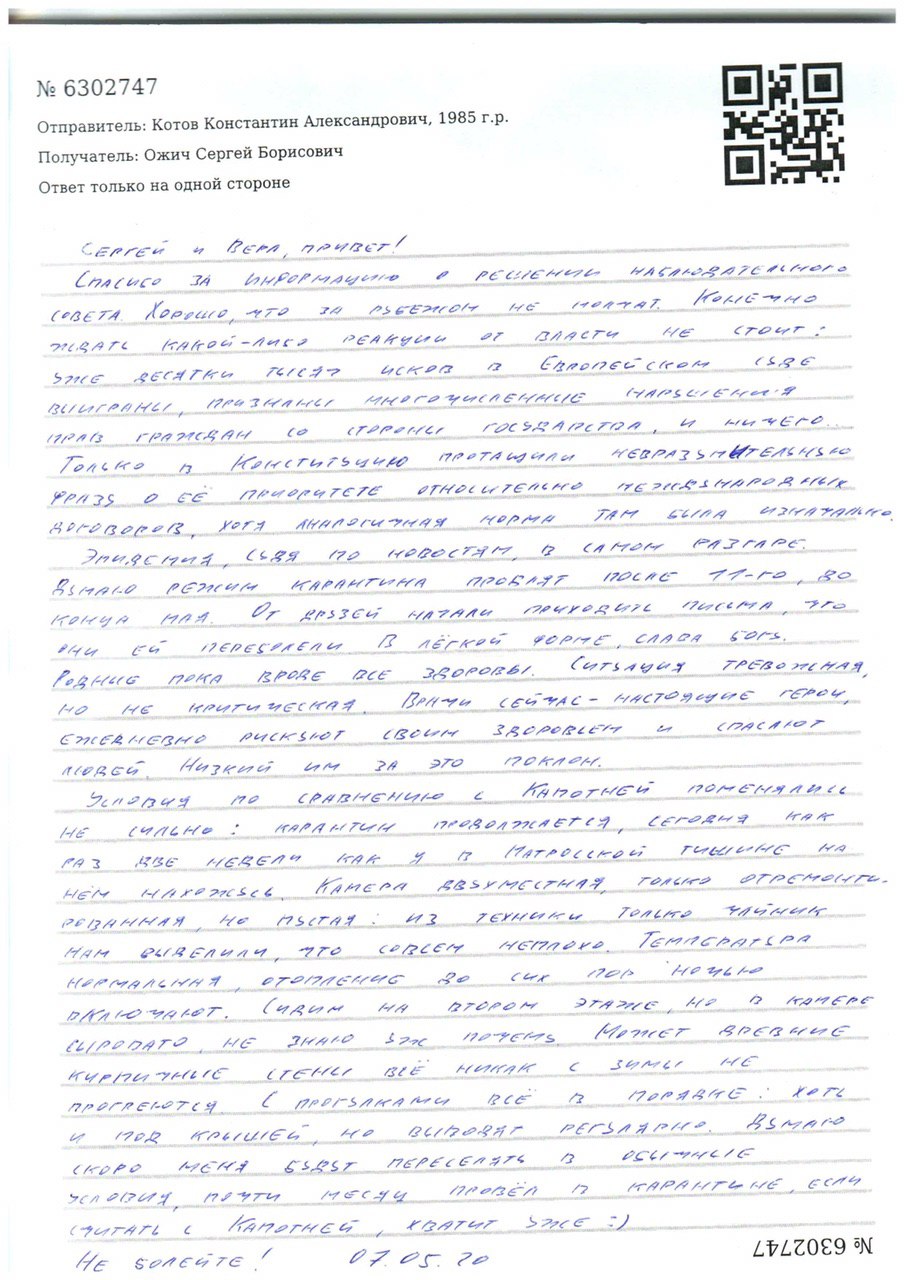 № 6302747
Отправитель: Котов Константин Александрович, 1985 г.р.
Получатель: Ожич Сергей Борисович
Ответ только на одной стороне
Сергей и Вера, привет!
Спасибо за информацию о решении наблюдательного
совета. Хорошо, что за рубежом не молчат. Конечно
ждать какой-либо реакции от власти не стоит:
уже десятки тысяч исков в Европейском суде
выиграны, признаны многочисленные нарушения
прав граждан со стороны государства, и ничего...
Только в Конституцию протащили невразумительную
фразу о её приоритете относительно международных
договоров, хотя аналогичная норма там была изначально.
Эпидемия, судя по новостям, в самом разгаре.
Думаю режим карантина продлят после 11-го, до
конца мая. От друзей начали приходить письма, что
они ей переболели в лёгкой форме, слава богу.
Родные пока вроде все здоровы. Ситуация тревожная,
но не критическая. Врачи сейчас - настоящие герои,
ежедневно рискуют своим здоровьем и спасают
людей. Низкий им за это поклон.
Условия по сравнению с Капотней поменялись
не сильно: карантин продолжается, сегодня как
раз две недели как я в Матросской тишине на
нём нахожусь. Камера двухместная, только отремонти-
рованная, но пустая: из техники только чайник
нам выделили, что совсем неплохо. Температура
нормальная, отопление до сих пор ночью
включают. Сидим на втором этаже, но в камере
сыровато, не знаю уж почему. Может древние
кирпичные стены всё никак с зимы не
прогреются. С прогулками всё в порядке: хоть
и под крышей, но выводят регулярно. Думаю
скоро меня будут переселять в обычные
условия, почти месяц провёл в карантине, если
считать с Капотней, хватит уже :)
Не болейте! 07.05.20
№ 6302747